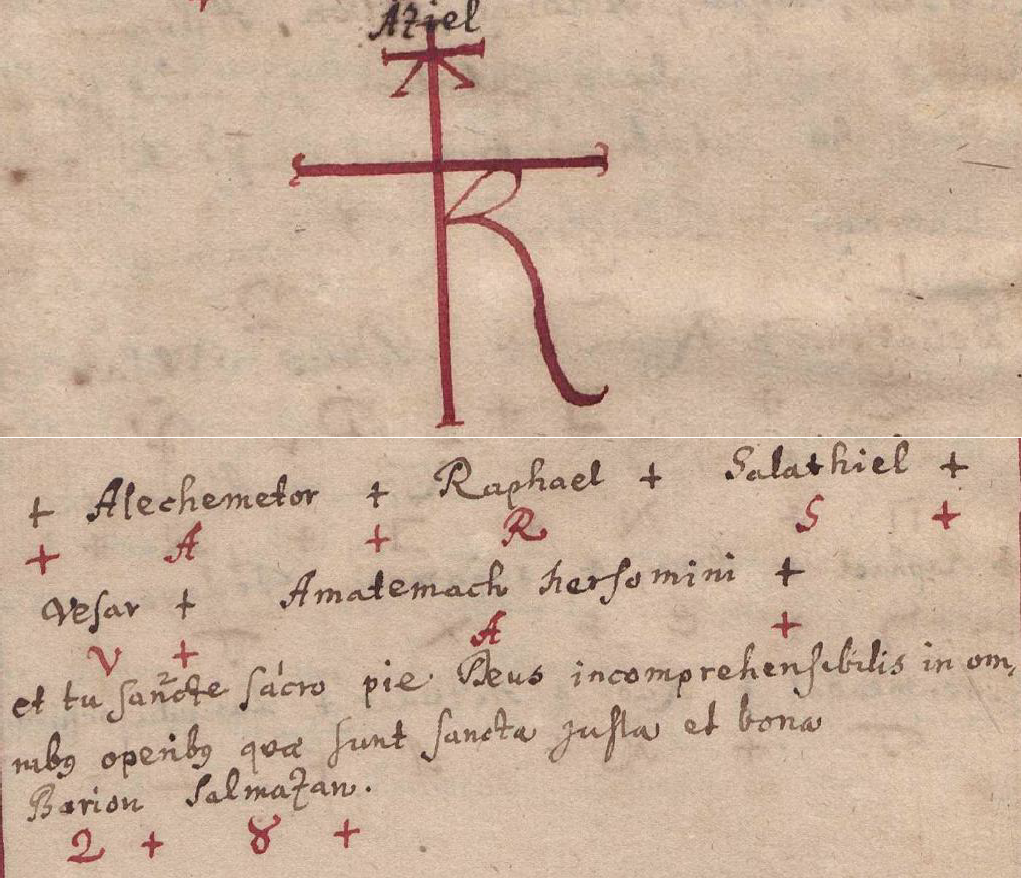 Aziel
R
+ Alechemetor + Raphael + Salathiel +
+ A + R S +
Vesar + Amatemach hersomini +
V + A +
et tu sancte sacro pie Deus incomprehensibilis in om,
nibꝯ operibꝯ quæ sunt sancta justa et bona
Borion Salmazan.
2 + 8 +